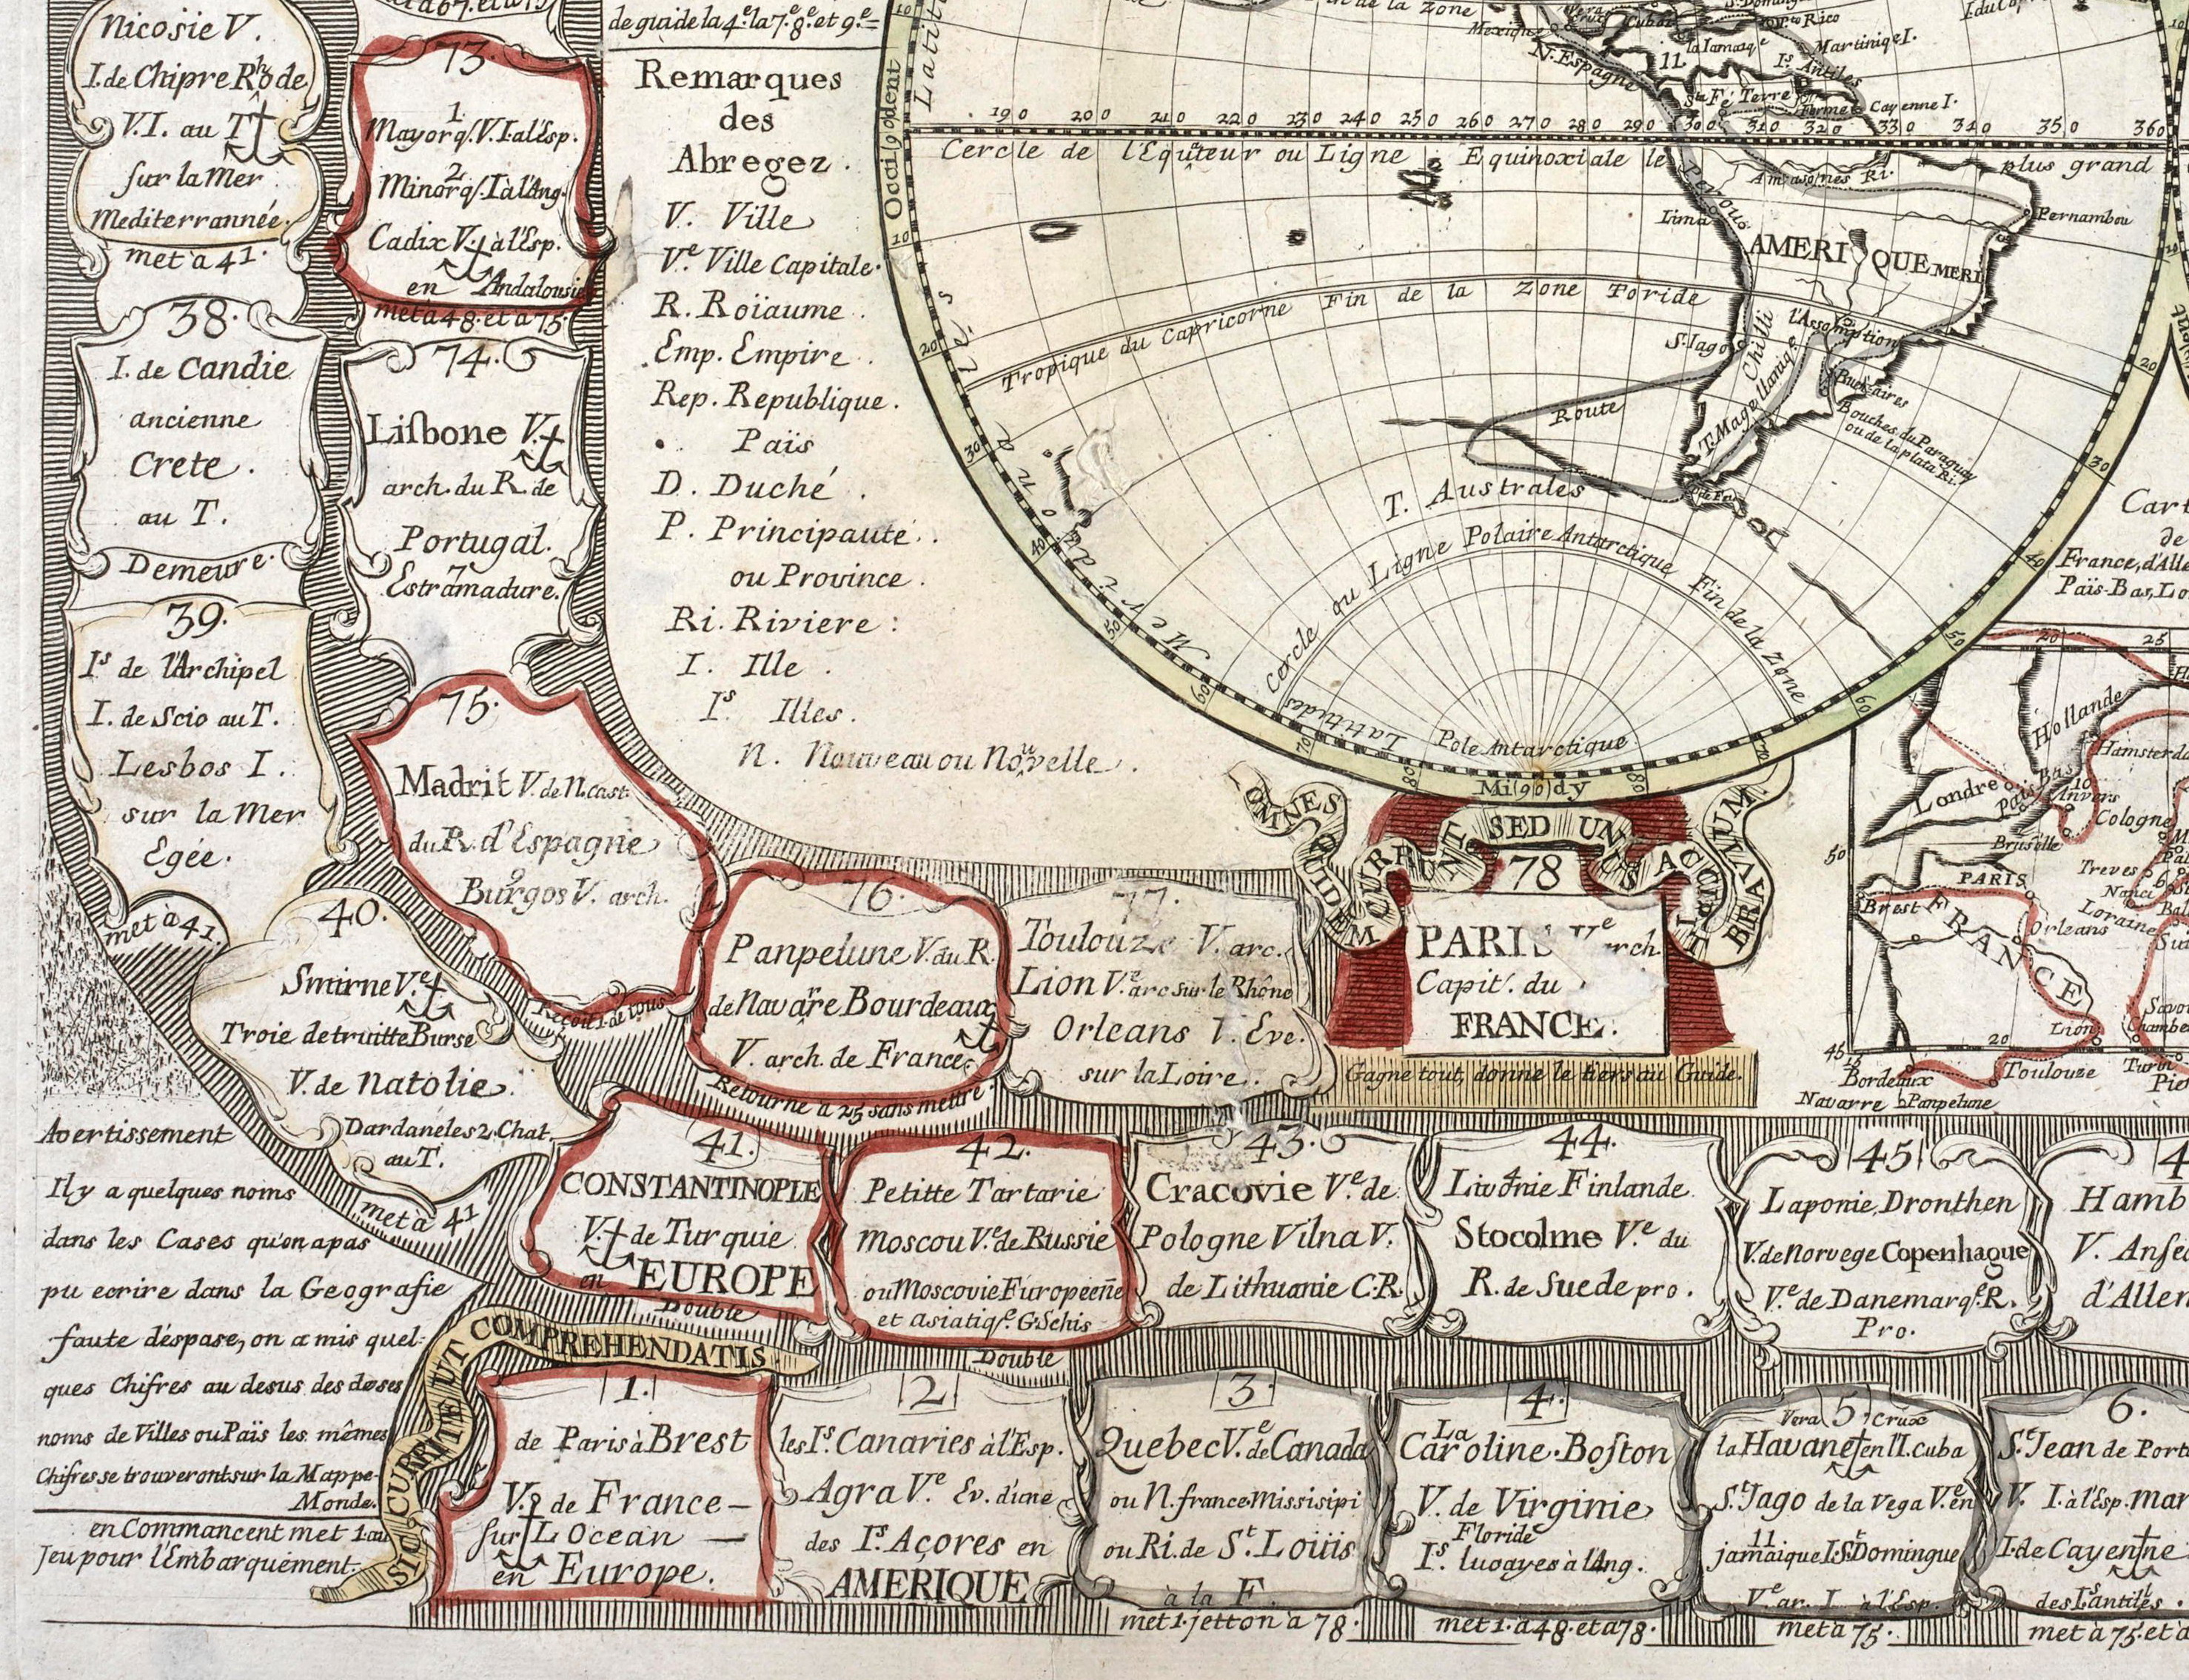 Nicosie V.
I. de Chipre Rhode
V.I. au T
sur la Mer
Mediterrannée.
met à 41.
38.
I. de Candie
ancienne
Crete.
au T.
Demeure.
39.
Is de l'Archipel
I. de Scio au T.
Lesbos I.
sur la Mer
Egée.
met à 41.
40.
Smirne Ve
Troie detruitte Burse
V. de Natolie.
Dardanéles 2. Chat.
au T.
met à 41
73.
1
Mayorq. V.I. al'Esp.
2
Minorq. I. àl'Ang.
Cadix V. à l'Esp.
en Andalousie
met à 48. et à 75.
74.
Lisbone V.
arch. du R. de
Portugal.
7
Estramadure.
75.
Madrit V. de N. Cast.
du R. d'Espagne
9
Burgos V. arch.
Reçoit 1. de tous
76.
Panpelune V. du R.
de Navarre Bourdeaux
V. arch. de France
Retourne a 25 sans mettre.
77.
Toulouze V. arc.
Lion Ve arc sur le Rhône
Orleans V. Eve.
sur la Loire.
OMNES QUIDEM CURRUNT SED UNUS ACCIPIT BRAVIUM
78
PARIS Ve arch.
Capit. du
FRANCE.
Gagne tout, donne le tiers au Guide.
de guide la 4e. la 7e. 8e. et 9e.
Remarques
des
Abregez.
V. Ville
Ve. Ville Capitale.
R. Roïaume.
Emp. Empire.
Rep. Republique.
• Païs
D. Duché.
P. Principauté.
ou Province.
Ri. Riviere:
I. Ille.
Is Illes.
N. Nouveau ou Nouvelle.
de la Zone
Mexique
N. Espagne
Cuba
Pto Rico
la Iamaiqe
Martiniqe I.
Is Antiles
11
Ste Fé Terre Ferme
Cayenne I.
190 200 210 220 230 240 250 260 270 280 290 300 310 320 330 340 350 360
Cercle de l'Equateur ou Ligne Equinoxiale le plus grand
Occi(90)dent
Latit
Amasones Ri.
Perou
Lima
Pernambou
AMERIQUE MERI
Tropique du Capricorne Fin de la Zone Toride
l'Assomption
S. Iago
Chilli
T. Magellanique
Bues-aires
Bouches du Paraguay
ou de la plata Ri.
Route
T. Australes
Cercle ou Ligne Polaire Antarctique Fin de la Zone
Meridional
Latitudes
Pole Antarctique
Mi(90)dy
10 20 30 40 50 60 70 80
80 70 60 50 40 30 20
Cart
de
France, d'Alle
Païs-Bas, Lo
20 25
Hollande
Hamsterda
Londre
Païs Bas
10
Anvers
Cologne
Bruselle
50
Treves
PARIS
Nanci
Brest
FRANCE
Orleans
Loraine
Savoi
Chambe
Lion
45
20
Bordeaux
Toulouze
Turin
Navarre Panpelune
Avertissement
Il y a quelques noms
dans les Cases qu'on a pas
pu ecrire dans la Geografie
faute d'éspase, on a mis quel-
ques Chifres au desus des doses
noms de Villes ou Païs les mêmes
Chifres se trouveront sur la Mappe-
Monde.
en Commancent met 1 au
Jeu pour l'Embarquement.
SIC CURRITE UT COMPREHENDATIS
41.
CONSTANTINOPLE
V. de Turquie
en EUROPE
Double
42.
Petitte Tartarie
Moscou Ve. de Russie
ou Moscovie Europeeñe
et asiatiq. G. Schis
Double
43.
Cracovie Ve. de
Pologne Vilna V.
de Lithuanie C.R.
44.
4
Livonie Finlande
Stocolme Ve. du
R. de Suede pro.
45
Laponie, Dronthen
V. de Norvege Copenhague
Ve. de Danemarq. R.
Pro.
4
Hamb
V. Anse
d'Allem
1.
de Paris à Brest
V. de France –
sur L'Ocean –
en Europe.
2
les Is. Canaries à l'Esp.
Agra Ve Ev. d'une
des Is. Açores en
AMERIQUE
3
Quebec V. de Canada
ou N. france Missisipi
ou Ri. de St. Loüis
à la F.
met 1. jetton a 78.
4.
La
Caroline. Boston
V. de Virginie
Floride
Is. lucayes à l'Ang.
met 1. à 48. et à 78.
5.
Vera Crux
la Havane en l'I. Cuba
St. Jago de la Vega Ve. en
11
jamaique I. St Domingue
Ve. ar. I. à l'Esp.
met à 75.
6.
St. Jean de Port
V. I. à l'Esp. mar
I. de Cayenne
des Is. antiles.
met à 75. et à